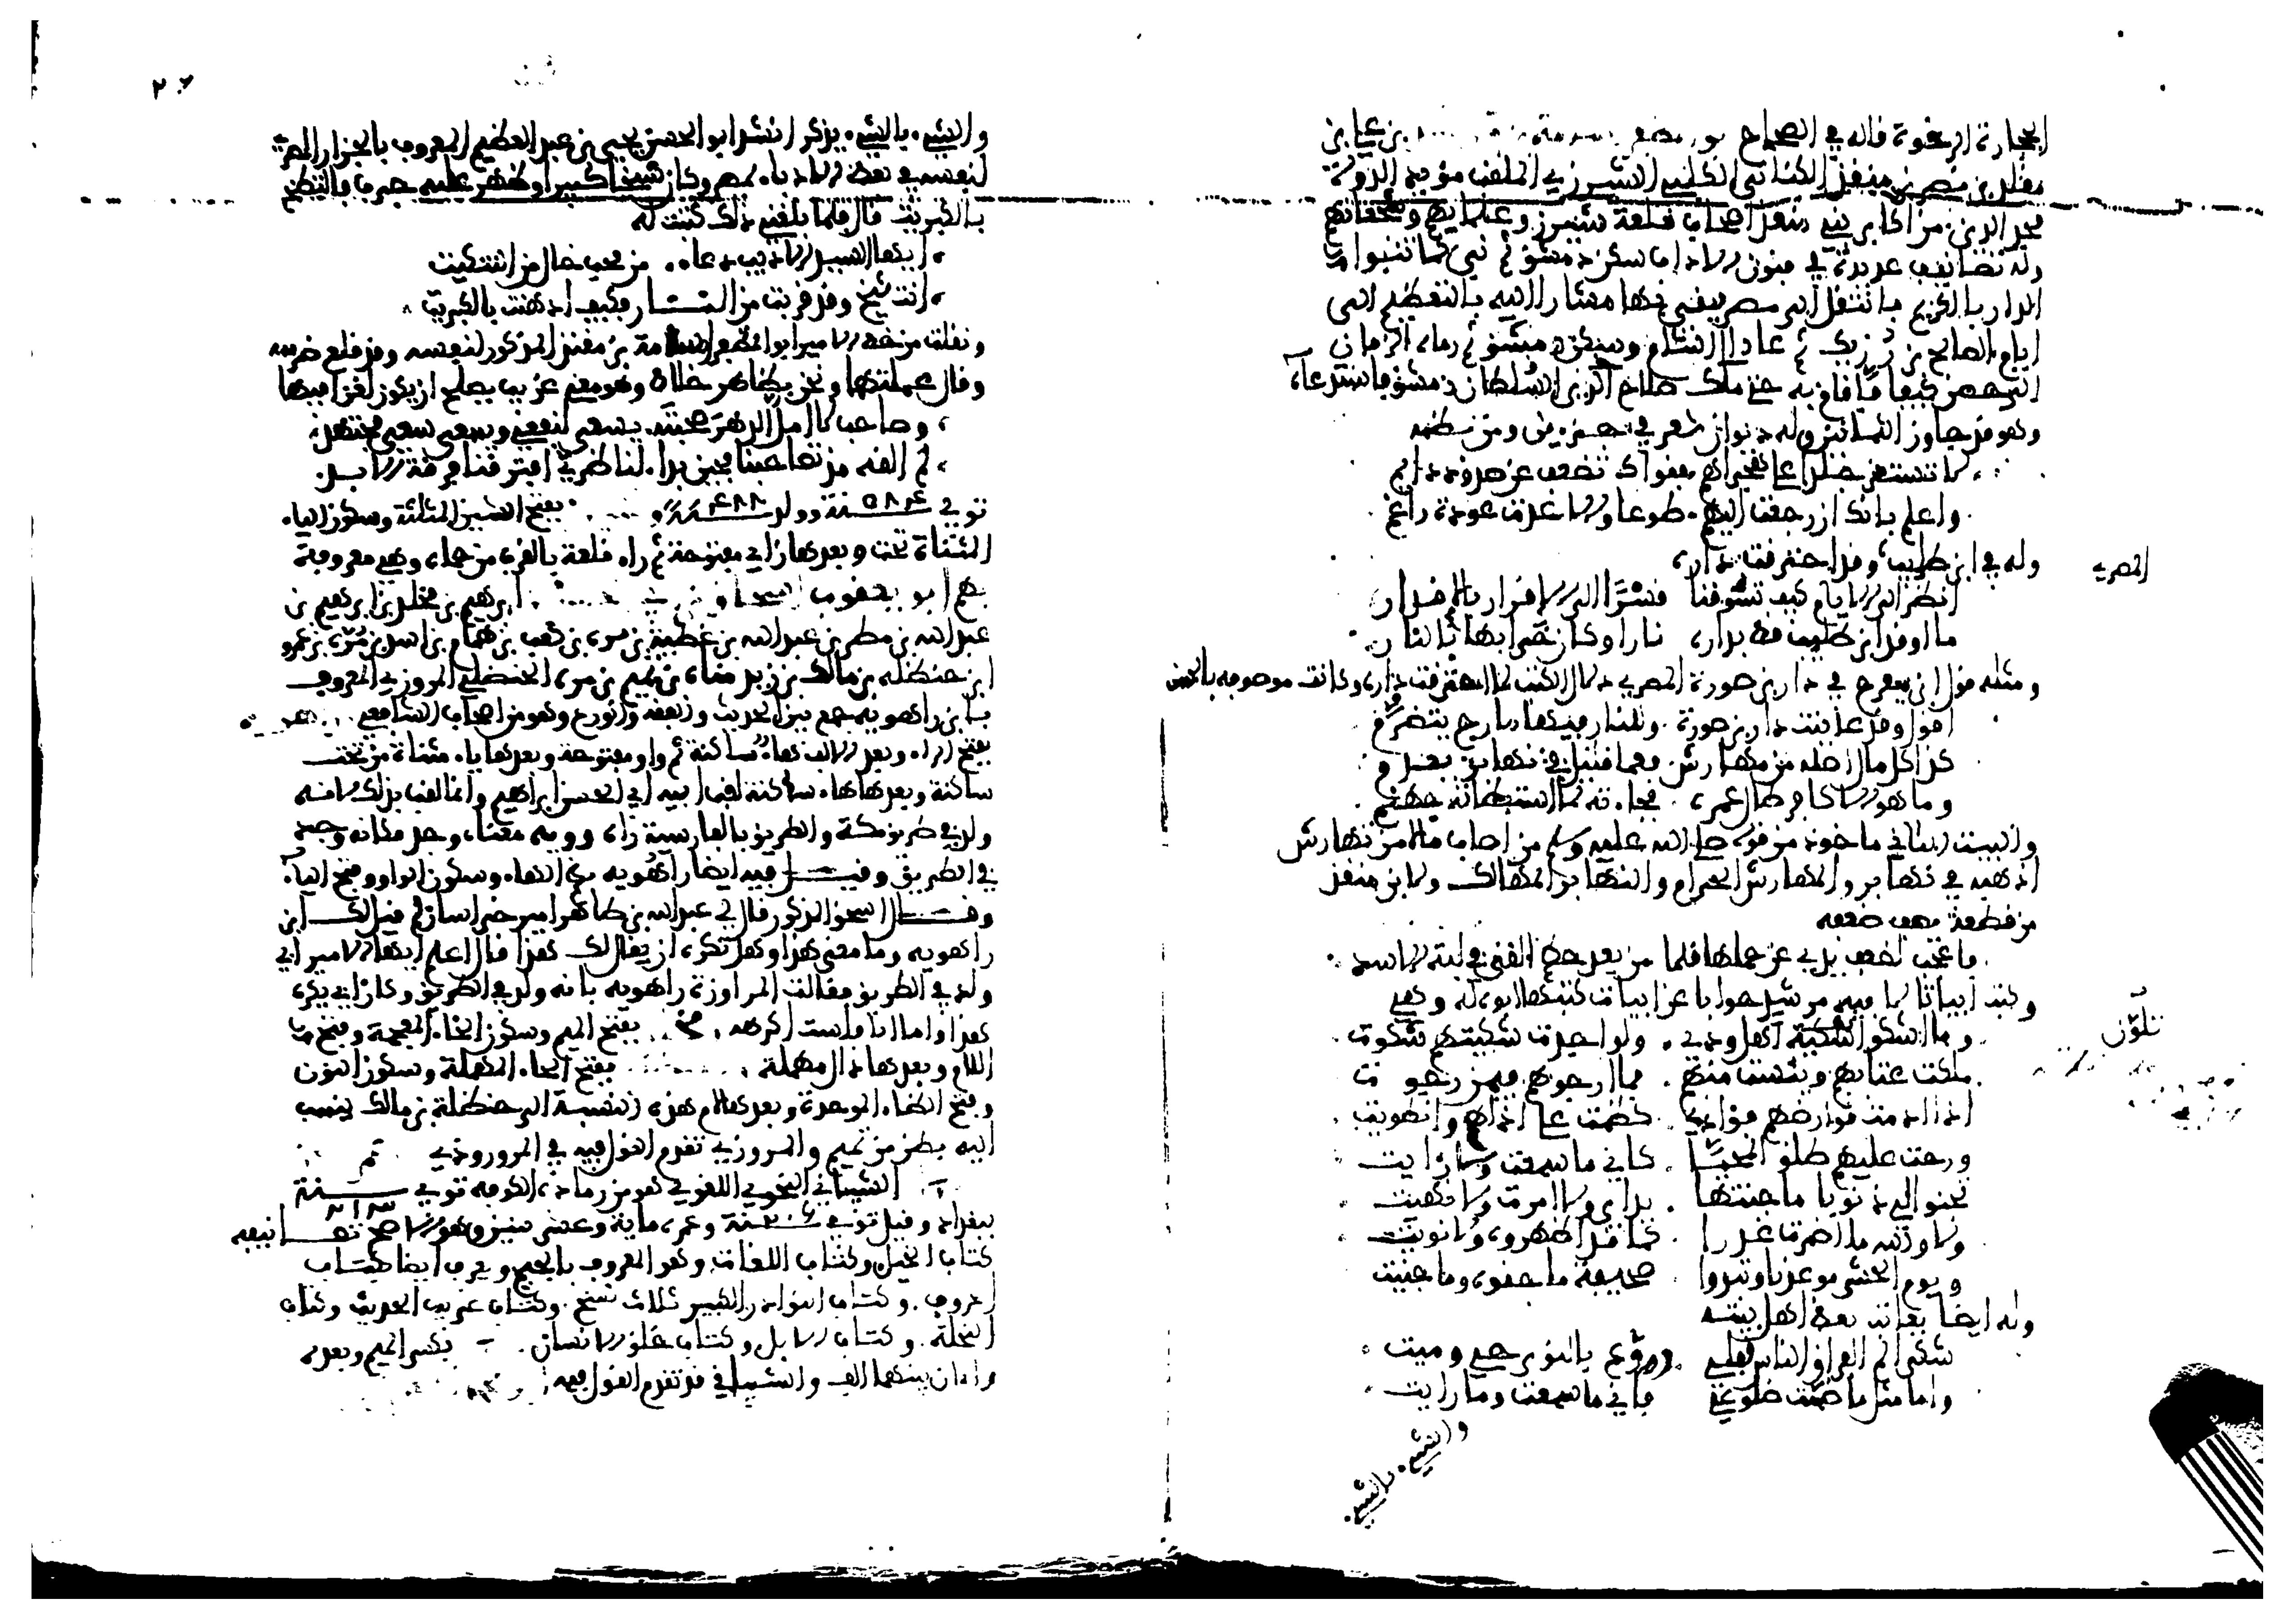 الحجارة الرخوة قاله في الصحاح بن علي بن
مقلد بن نصر بن منقذ الكناني الكلبي الشيزري الملقب مؤيد الدولة
مجد الدين من اكابر بني منقذ اصحاب قلعة شيزر وعلمايهم وشجعانهم
وله تصانيف عديدة في فنون الاداب سكن دمشق ثم نبت به كما تنبوا
الدار بالكريم فانتقل الى مصر فبقي بها مشارا اليه بالتعظيم الى
ايام الصالح بن رزيك ثم عاد الى الشام وسكن دمشق ثم رماه الزمان
الى حصن كيفا فاقام به حتى ملك صلاح الدين السلطان دمشق فاستدعاه
وهو قد جاوز الثمانين وله ديوان شعر في جزءين ومن نظمه
لا تستعر جلدا على هجرانهم فقواك تضعف عن صدود دايم
واعلم بانك ان رجعت اليهم طوعا والا عدت عودة راغم
وله في ابن طليب وقد احترقت داره
المصري
انظر الى الايام كيف تسوقنا قسرا الى الاقرار بالاقدار
ما اوقد ابن طليب قط بداره نارا وكان خرابها بالنار
ومثله قول ابن مفرج في دار بن صورة المصري دلال الكتب لما احترقت داره وكانت موصوفه بالحسن
اقول وقد عاينت دار بن صورة وللنار فيها مارج يتضرم
كذا كل مال اصله من مهاوش فعما قليل في نهابر يعدم
وما هو الا كافر طال عمره فجاءته لما استبطاته جهنم
والبيت الثاني ماخوذ من قوله صلى الله عليه وسلم من اصاب مالا من نهاوش
اذهبه في نهابر والمهاوش الحرام والنهابر المهالك ولابن منقذ
من قطعة يصف ضعفه
فاعجب لضعف يدي عن حملها قلما من بعد حطم القنا في لبة الاسد
وكتب ابياتا لابيه مرشد جوابا عن ابيات كتبها ابوه له وهي
وما اشكو تلون اهل ودي ولو اجدت شكيتهم شكوت
تلون
مللت عتابهم ويئست منهم فما ارجوهم فيمن رجوت
اذا ادمت قوارضهم فؤادي كظمت على اذاهم وانطويت
ورحت عليهم طلق المحيا كاني ما سمعت ولا رايت
تجنوا لي ذنوبا ما جنتها يداي ولا امرت ولا نهيت
ولا والله ما اضمرت غدرا كما قد اظهروه ولا نويت
ويوم الحشر موعدنا وتبدوا صحيفة ما جنوه وما جنيت
وله ايضا يعاتب بعض اهل بيته
شكى الم الفراق الناس قبلي وروع بالنوى حي وميت
واما مثل ما ضمت ضلوعي فاني ما سمعت وما رايت
والشيء بالشيء
والشيء بالشيء يذكر انشد ابو الحسن يحيى بن عبد العظيم المعروف بالجزار المصري
لنفسه في بعض الادباء بمصر وكان شيخا كبيرا وظهر عليه جرب فالتطخ
بالكبريت قال فلما بلغني ذلك كتبت له
ايها السيد الاديب دعاء من محب خال من التنكيت
انت شيخ وقد قربت من النار فكيف ادهنت بالكبريت
ونقلت من خط الامير ابو المظفر اسامة بن منقذ المذكور لنفسه وقد قلع ضرسه
وقال عملتها ونحن بظاهر خلاط وهو معنى غريب يصلح ان يكون لغزا فيها
وصاحب لا امل الدهر صحبته يسعى لنفعي ويسعى سعي مجتهد
لم القه مذ تصاحبنا فحين بدا لناظري افترقنا فرقة الابد
توفي سنة ٥٨٤ وولد سنة ٤٨٨ بفتح الشين المثلثة وسكون الياء
المثناة تحت وبعدها زاي مفتوحة ثم راء قلعة بالقرب من حماه وهي معروفة
بهم ابو يعقوب اسحاق بن ابرهيم بن مخلد بن ابرهيم بن
عبد الله بن مطر بن عبد الله بن غطية بن مرة بن كعب بن همام بن اسد بن مرة بن عمرو
ابن حنظله بن مالك بن زيد مناة بن تميم بن مره الحنظلي المروزي المعروف
بابن راهويه جمع بين الحديث والفقه والورع وهو من اصحاب الشافعي
بفتح الراء وبعد الالف هاء ساكنة ثم واو مفتوحة وبعدها ياء مثناة من تحت
ساكنة وبعدها هاء ساكنة لقب ابيه ابي الحسن ابراهيم وانما لقب بذلك لانه
ولد في طريق مكة والطريق بالفارسية راه وويه معناه وجد فكانه وجد
في الطريق وقيل فيه ايضا راهويه بضم الهاء وسكون الواو وفتح الياء
وقال اسحق المذكور قال لي عبد الله بن طاهر امير خراسان لم قيل لك ابن
راهويه وما معنى هذا وهل تكره ان يقال لك هذا قال اعلم ايها الامير ابي
ولد في الطريق فقالت المراوزة راهويه بانه ولد في الطريق وكان ابي يكره
هذا واما انا فلست اكرهه بفتح الميم وسكون الخاء المعجمة وفتح
اللام وبعدها دال مهملة بفتح الحاء المهملة وسكون النون
وفتح الظاء الموحدة وبعدها لام هذه النسبة الى حنظلة بن مالك ينسب
اليه بطن من تميم والمروزي تقدم القول فيه في المروروذي
الشيباني النحوي اللغوي هو من رمادة الكوفه توفي سنة ٢١٣
ببغداد وقيل توفي سنة ٢٠٦ وعمره ماية وعشر سنين وهو الاصح تصانيفه
كتاب الخيل وكتاب اللغات وهو المعروف بالجيم ويعرف ايضا بكتاب
الحروف وكتاب النوادر الكبير ثلاث نسخ وكتاب غريب الحديث وكتاب
النحلة وكتاب الابل وكتاب خلق الانسان بكسر الميم وبعده
راءان بينهما الف والشيباني قد تقدم القول فيه